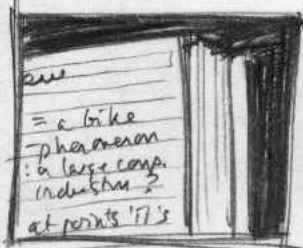 = a bike
phenomenon
: a large comp.
industry?
at points 'π's